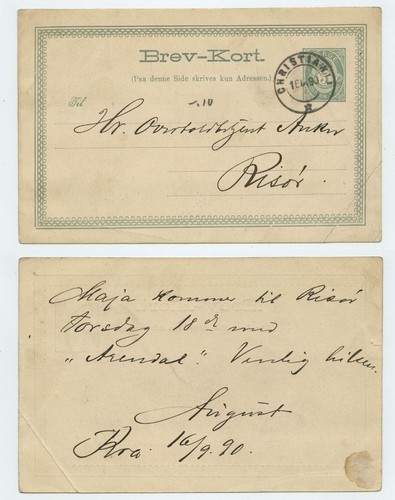 Brev-Kort.
(Paa denne Side skrives kun Adressen.)
CHRISTIANIA
Til
-.10
Hr. Overtoldbetjent Anker
Risör.
Maja kommer til Risör
Torsdag 18 de med
"Arendal". Venlig hilsen.
August
Kra. 16/9.90.